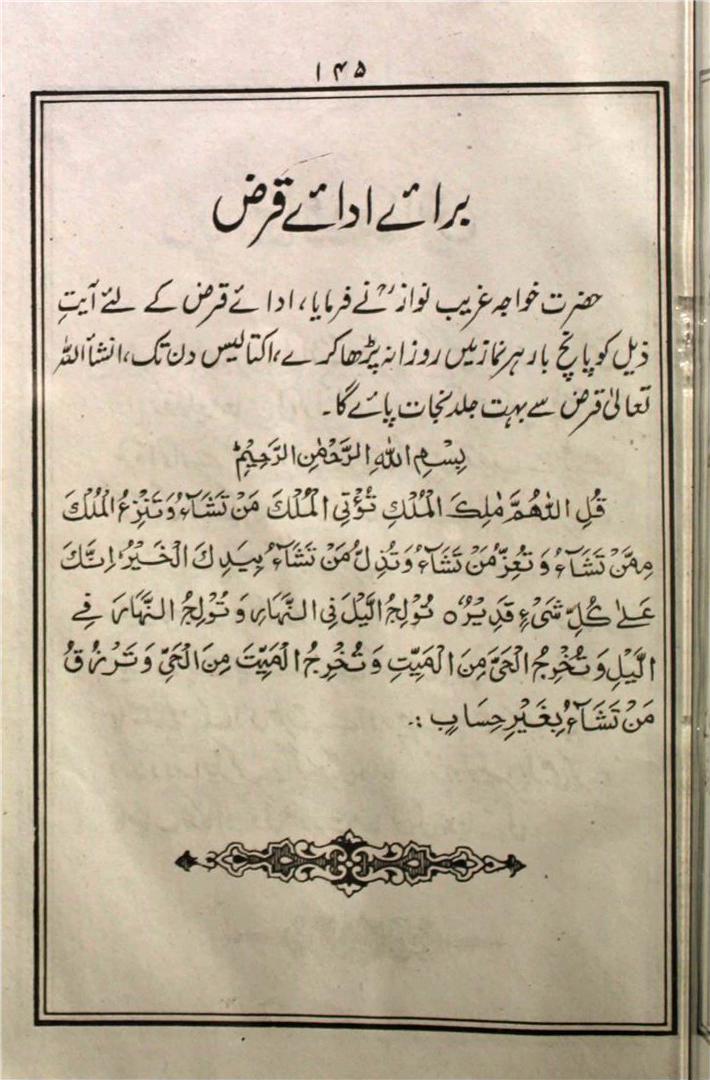 ۱۴۵
برائے ادائے قرض
حضرت خواجہ غریب نوازؒ نے فرمایا، ادائے قرض کے لئے آیتِ
ذیل کو پانچ بار ہر نماز میں روزانہ پڑھا کرے، اکتالیس دن تک، انشأاللہ
تعالیٰ قرض سے بہت جلد نجات پائے گا۔
بِسْمِ اللهِ الرَّحْمٰنِ الرَّحِيْمِؕ
قُلِ اللّٰهُمَّ مٰلِكَ الْمُلْكِ تُؤْتِي الْمُلْكَ مَنْ تَشَآءُ وَتَنْزِعُ الْمُلْكَ
مِمَّنْ تَشَآءُ وَتُعِزُّ مَنْ تَشَآءُ وَتُذِلُّ مَنْ تَشَآءُ بِيَدِكَ الْخَيْرُ اِنَّكَ
عَلٰى كُلِّ شَيْءٍ قَدِيْرٌ ○ تُوْلِجُ الَّيْلَ فِي النَّهَارِ وَتُوْلِجُ النَّهَارَ فِي
الَّيْلِ وَتُخْرِجُ الْحَيَّ مِنَ الْمَيِّتِ وَتُخْرِجُ الْمَيِّتَ مِنَ الْحَيِّ وَتَرْزُقُ
مَنْ تَشَآءُ بِغَيْرِ حِسَابٍ ؞